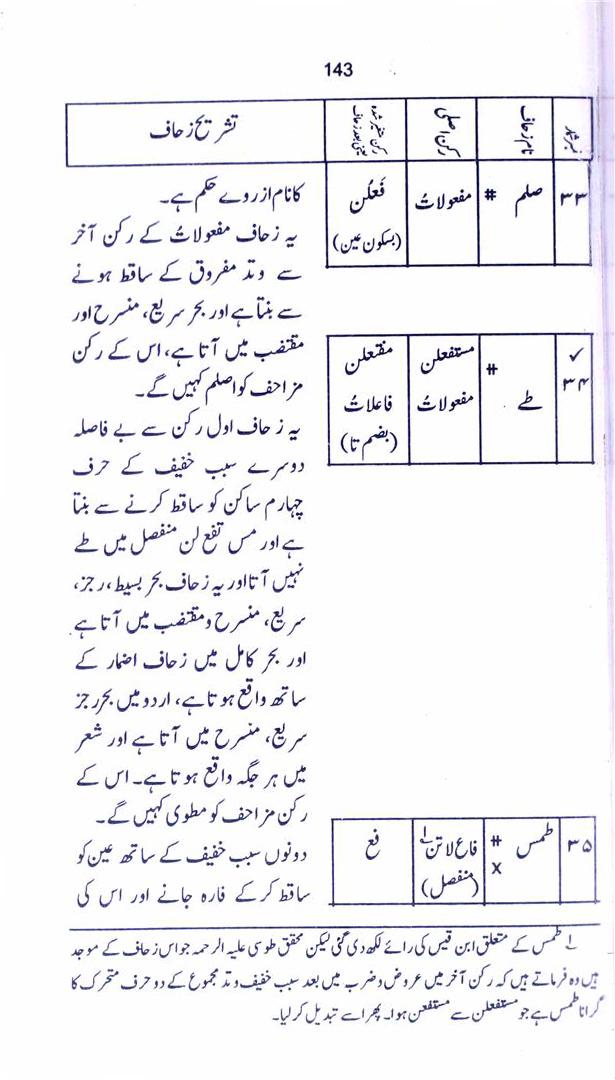 143
نمبر شمار
نام زحاف
رکن اصلی
رکن متغیر شدہ
یعنی بعد زحاف
تشریح زحاف
۳۳
صلم #
مفعولاتُ
فَعْلُن
(بسکون عین)
کا نام از روے حکم ہے۔
یہ زحاف مفعولاتُ کے رکن آخر
سے وتد مفروق کے ساقط ہونے
سے بنتا ہے اور بحر سریع، منسرح اور
مقتضب میں آتا ہے، اس کے رکن
مزاحف کو اصلم کہیں گے۔
✓
۳۴
طے #
مستفعلن
مفعولاتُ
مفتعلن
فاعلاتُ
(بضم تا)
یہ زحاف اول رکن سے بے فاصلہ
دوسرے سبب خفیف کے حرف
چہارم ساکن کو ساقط کرنے سے بنتا
ہے اور مس تفع لن منفصل میں طے
نہیں آتا اور یہ زحاف بحر بسیط، رجز،
سریع، منسرح و مقتضب میں آتا ہے
اور بحر کامل میں زحاف اضمار کے
ساتھ واقع ہوتا ہے، اردو میں بحر رجز
سریع، منسرح میں آتا ہے اور شعر
میں ہر جگہ واقع ہوتا ہے۔ اس کے
رکن مزاحف کو مطوی کہیں گے۔
۳۵
طمس #
x
فاع لاتن ۱
(منفصل)
فع
دونوں سبب خفیف کے ساتھ عین کو
ساقط کر کے فارہ جانے اور اس کی
۱ طمس کے متعلق ابن قیس کی رائے لکھ دی گئی لیکن محقق طوسی علیہ الرحمہ جو اس زحاف کے موجد
ہیں وہ فرماتے ہیں کہ رکن آخر میں عروض و ضرب میں بعد سبب خفیف وتد مجموع کے دو حرف متحرک کا
گرانا طمس ہے جو مستفعلن سے مستفعن ہوا۔ پھر اسے تبدیل کر لیا۔